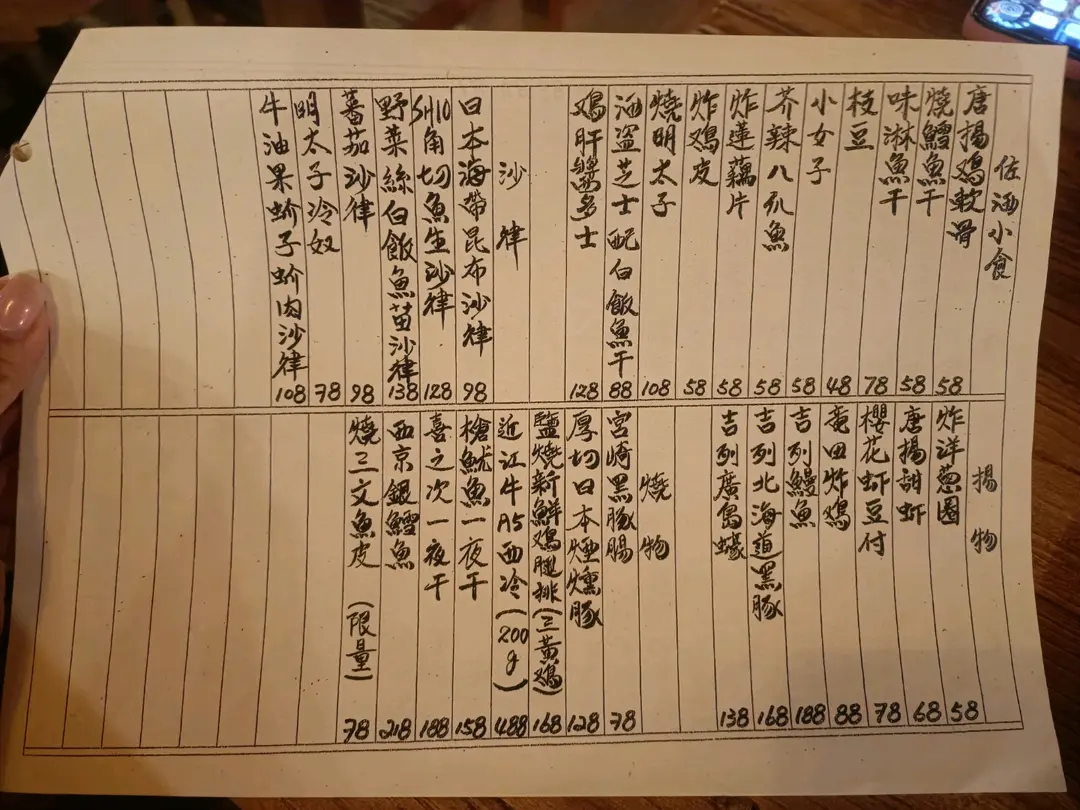 佐酒小食
唐揚鷄軟骨 58
燒鱈魚干 58
味淋魚干 78
枝豆 48
小女子 58
芥辣八爪魚 58
炸蓮藕片 58
炸鷄皮 58
燒明太子 108
酒盜芝士配白飯魚干 88
鷄肝醬多士 128
沙律
日本海帶昆布沙律 98
SH10角切魚生沙律 128
野菜絲白飯魚苗沙律 138
蕃茄沙律 98
明太子冷奴 78
牛油果蚧子蚧肉沙律 108
揚物
炸洋葱圈 58
唐揚甜虾 68
櫻花虾豆付 78
竜田炸鷄 88
吉列鰻魚 188
吉列北海道黑豚 168
吉列廣島蠔 138
燒物
宮崎黑豚腸 78
厚切日本煙燻豚 128
鹽燒新鮮鷄腿排(三黃鷄) 168
近江牛A5西冷(200g) 488
槍魷魚一夜干 158
喜之次一夜干 188
西京銀鱈魚 218
燒三文魚皮(限量) 78